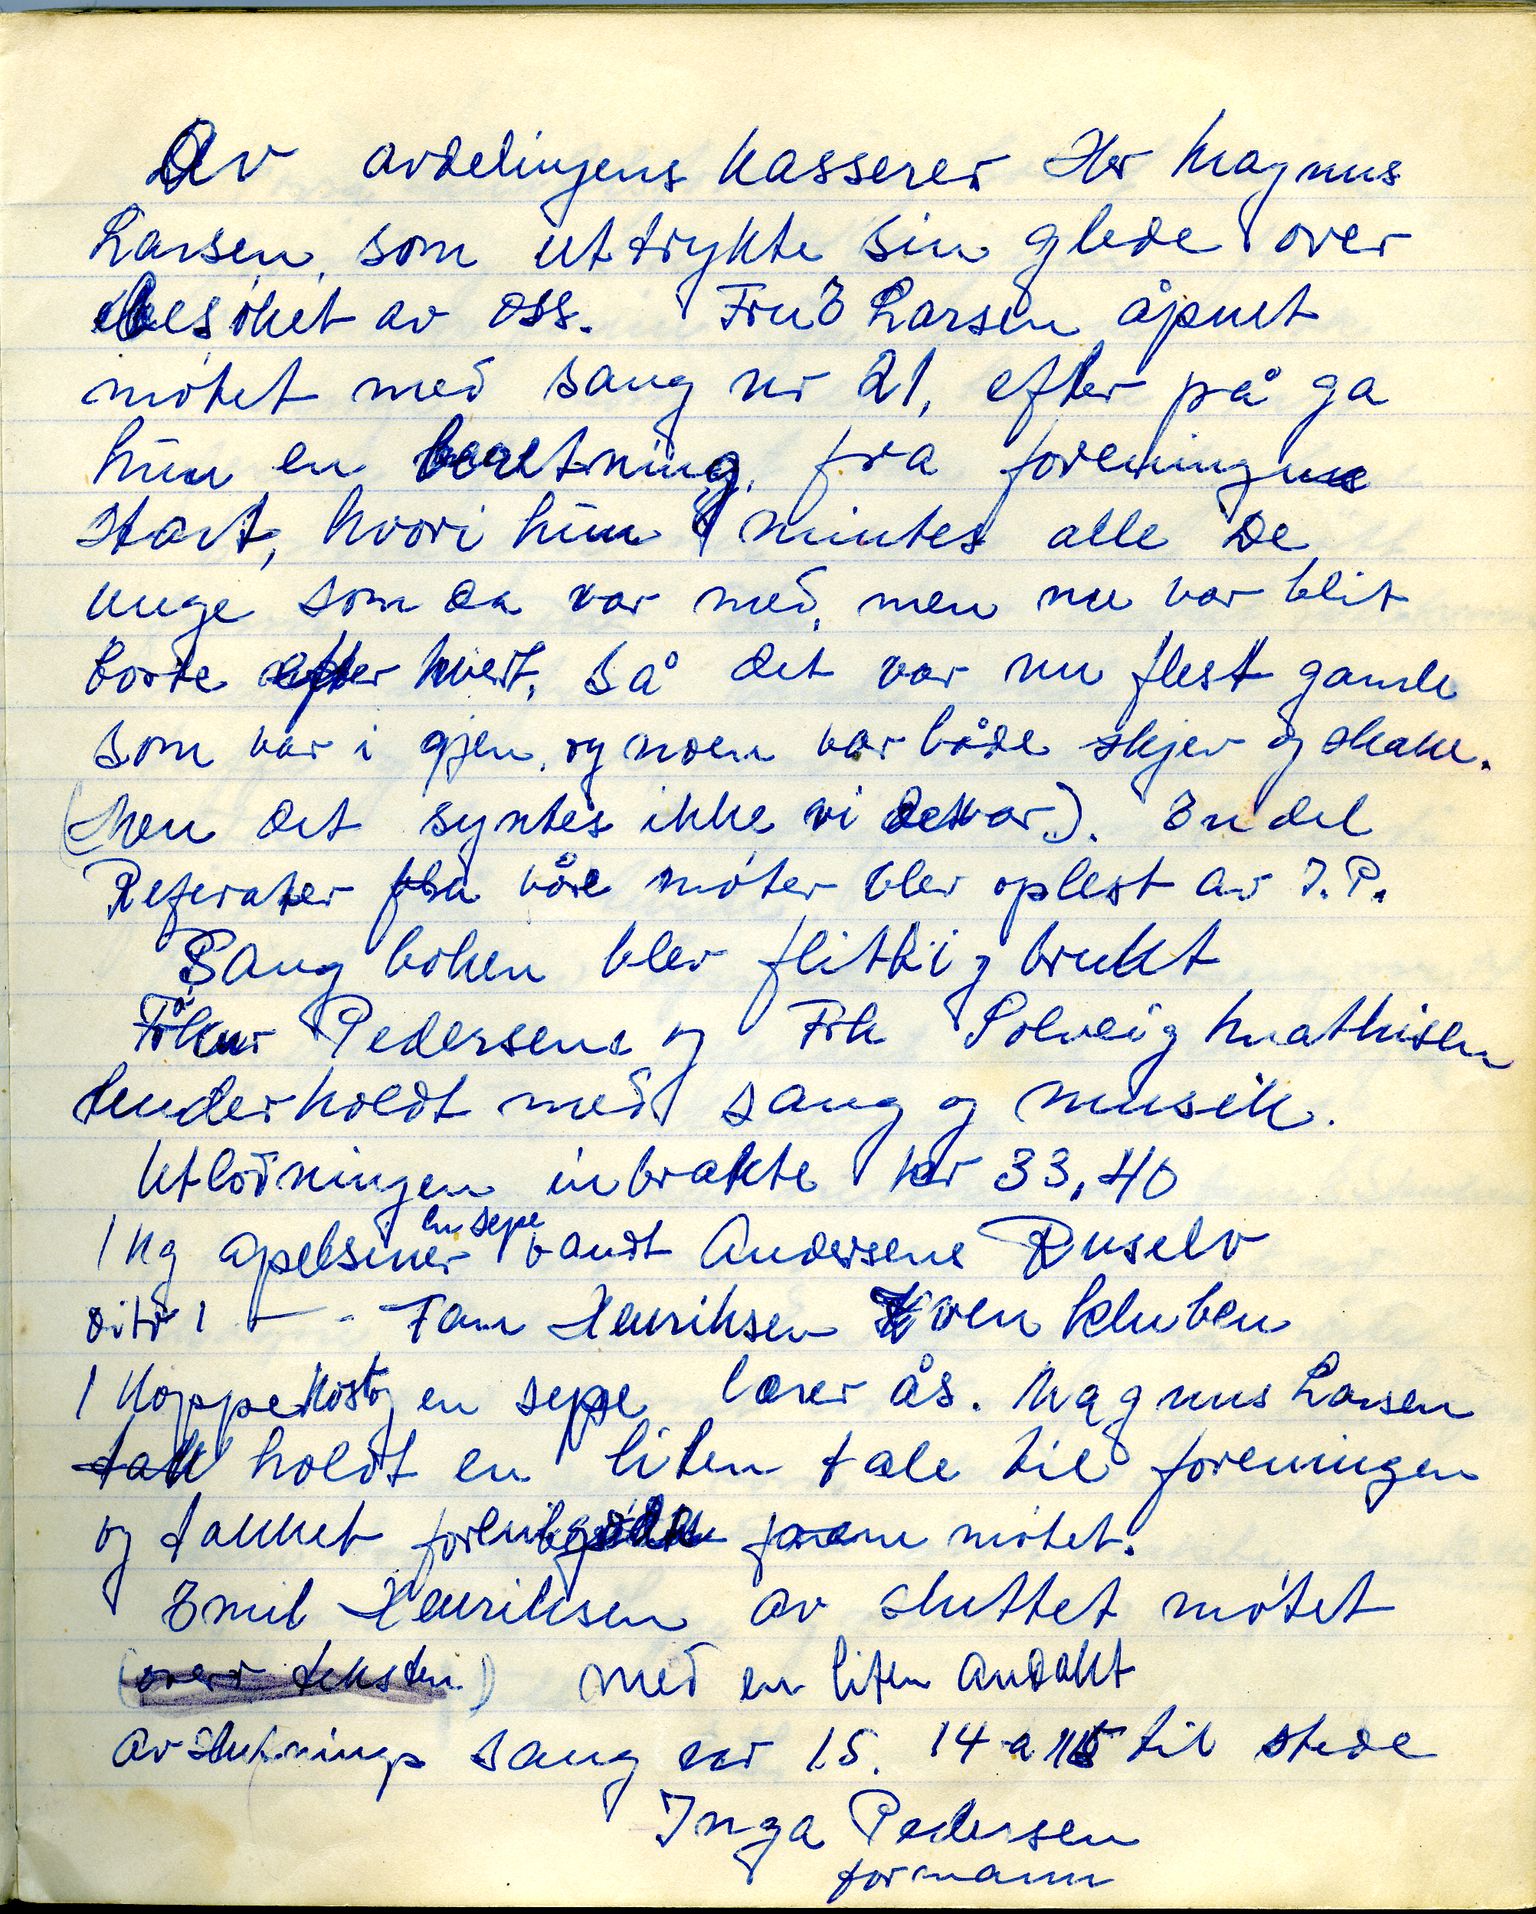 Av avdelingens kasserer Her Magnus
Larsen, som uttrykte sin glede over
besøket av oss. Fru E Larsen åpnet
møtet med sang nr 21, efter på ga
hun en beretning, fra foreningens
start, hvori hun mintes alle de
unge som da var med, men nu var blit
borte efter hvert, så det var nu flest gamle
som var i gjen, og noen var både skjev og skakk.
(Men det syntes ikke vi det var). En del
Referater fra våre møter blev oplest av I. P.
Sang boken blev flittig brukt
Pedersen og Frk Solveig Mathisen
underholdt med sang og musik.
Utlodningen inbrakte kr 33,40
1 kg apelsiner en sepe vandt Andersen Ruselv
dito 1 — - Fam Henriksen Kven kluben
1 Koppekost og en sepe lærer ås. Magnus Larsen
takk holdt en liten tale til foreningen
og takket møtet.
Emil Henriksen av sluttet møtet
(over teksten) med en liten andakt
Avslutnings sang nr 15. 14 a 15 til stede
Inga Pedersen
formann